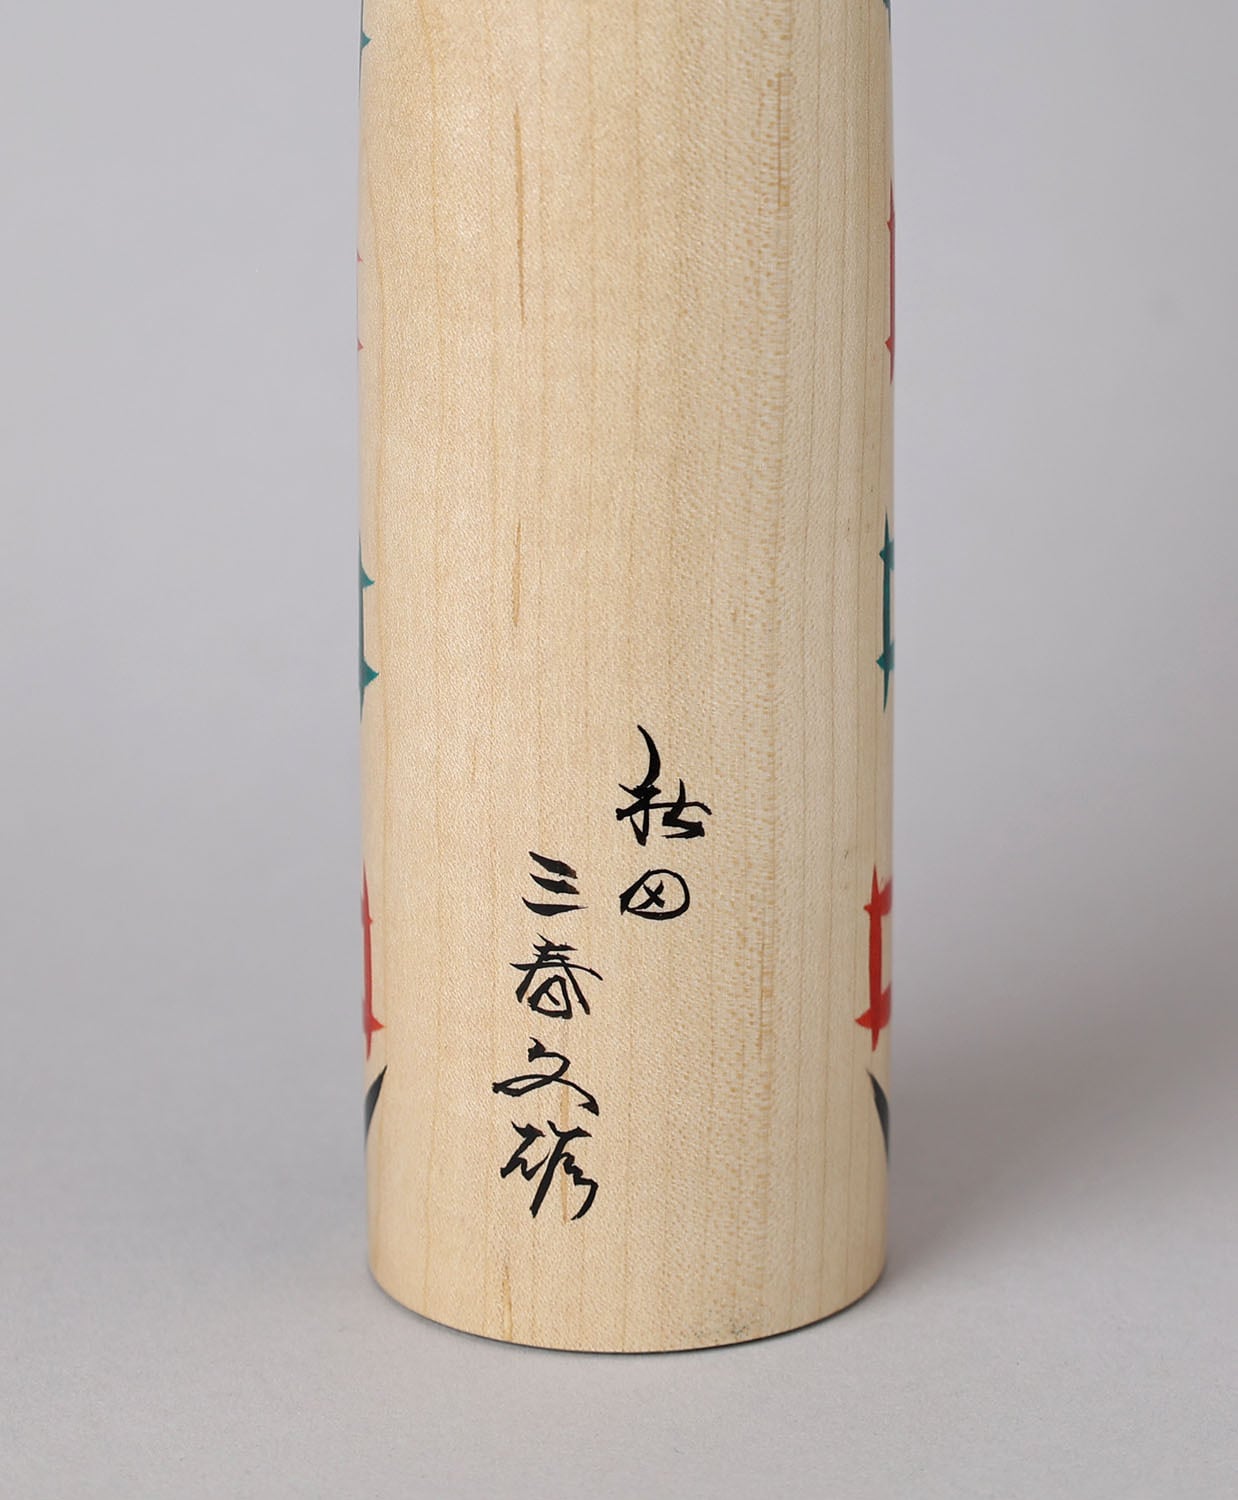 秋田
三春文雄